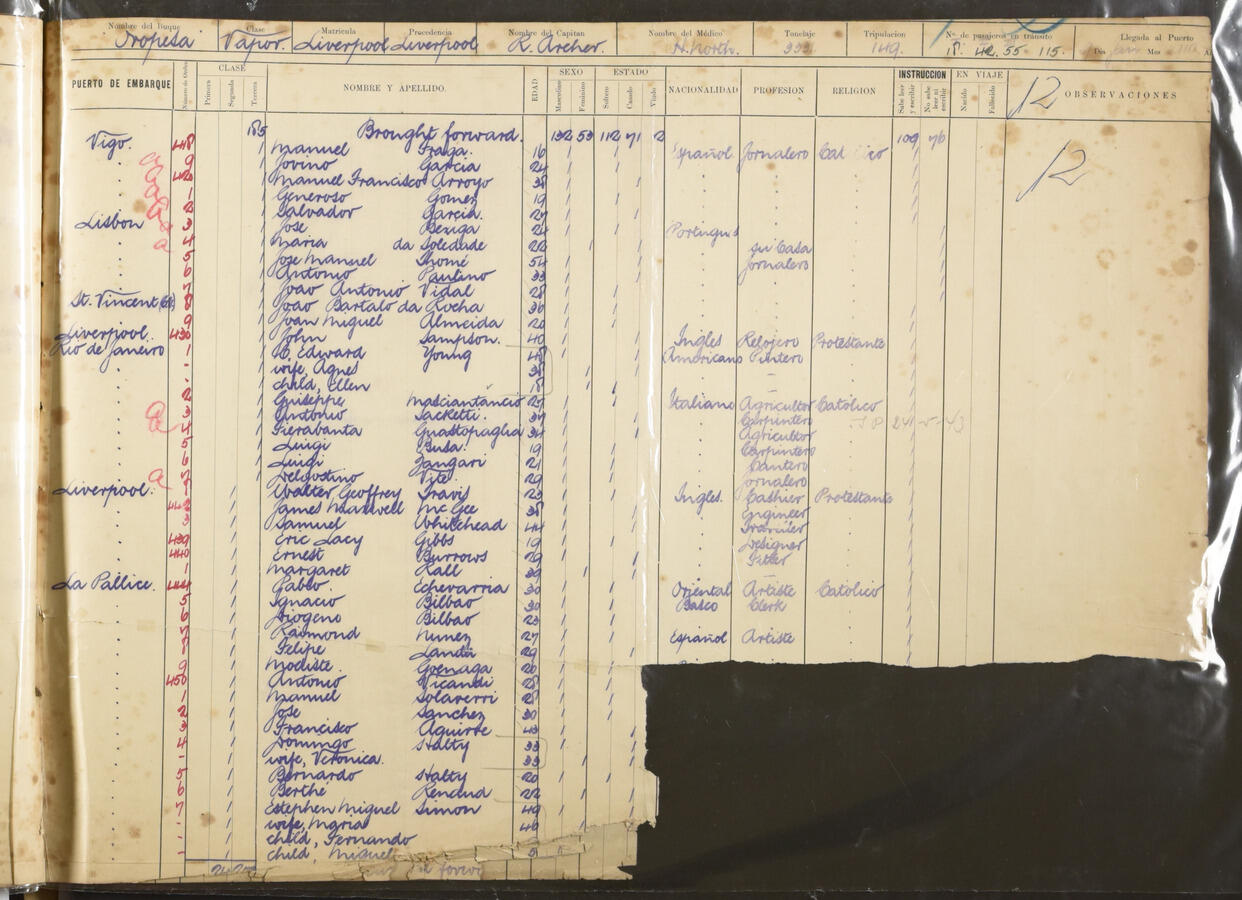 Nombre del Buque Clase Matricula Procedencia Nombre del Capitan Nombre del Médico Tonelaje Tripulacion Nº. de pasajeros en tránsito Llegada al Puerto
Oropesa Vapor. Liverpool Liverpool R. Archer. H. North. 149. 115. Dia Mes A
PUERTO DE EMBARQUE Número de Orden CLASE Primera Segunda Tercera NOMBRE Y APELLIDO. EDAD SEXO Masculino Femenino ESTADO Soltero Casado Viudo NACIONALIDAD PROFESION RELIGION INSTRUCCION Sabe leer y escribir No sabe leer ni escribir EN VIAJE Nacido Fallecido OBSERVACIONES
12
185 Brought forward. 132 53 112 71 2 109 76
Vigo. 448 Manuel Fraga. 16 Español Jornalero Católico
9 Jovino Garcia 24
Manuel Francisco Arroyo 38
1 Generoso Gomez 19
2 Salvador Garcia. 27
Lisbon 3 José 24 Portugues
4 Maria da Soledade 22 su Casa
5 Jose Manuel Thomé 54 Jornalero
6 Antonio Paulino 33
7 Joao Antonio Vidal 28
St. Vincent 8 Joao Bartalo da Rocha 36
9 Joan Miguel Almeida 20
Liverpool. 430 John Sampson. 40 Ingles Relojero Protestante
Rio de Janeiro 1 Edward Young 45 Americano Pintero
wife, Agnes 38
child, Ellen
2 Guiseppe Masciantancio 27 Italiano Agricultor Católico
3 Antonio Sacketti. 37 Carpintero
4 Fierabanta Guastopaglia 34 Agricultor
5 Luigi Busa. 19 Carpintero
6 Luigi Zangari 21 Cantero
7 Delgostino Vito 29 Jornalero
Liverpool. Walter Geoffrey Travis 23 Ingles. Cashier Protestante
James Maxwell McGee 38 Engineer
3 Samuel Whitehead 44
439 Eric Lacy Gibbs 19 Designer
440 Ernest Burrows 29 Fitter
1 Margaret Kall 39
La Pallice. 444 Pablo. Echevarria 30 Oriental Artiste Católico
5 Ignacio Bilbao 30 Basco Clerk
6 Diogeno Bilbao 23
7 Raimond Nunez 27 Español Artiste
8 Felipe Landa 29
9 Modiste. Goenaga 20
450 Antonio Vicandi 28
1 Manuel Solaverri 28
2 Jose Sanchez 30
3 Francisco Aguirre 43
4 Domingo Halty 33
wife, Veronica. 33
5 Bernardo Halty 20
6 Berthe Renaud 22
7 Estephen Miguel Simon 49
wife, Maria 46
child, Fernando
child, Miguel